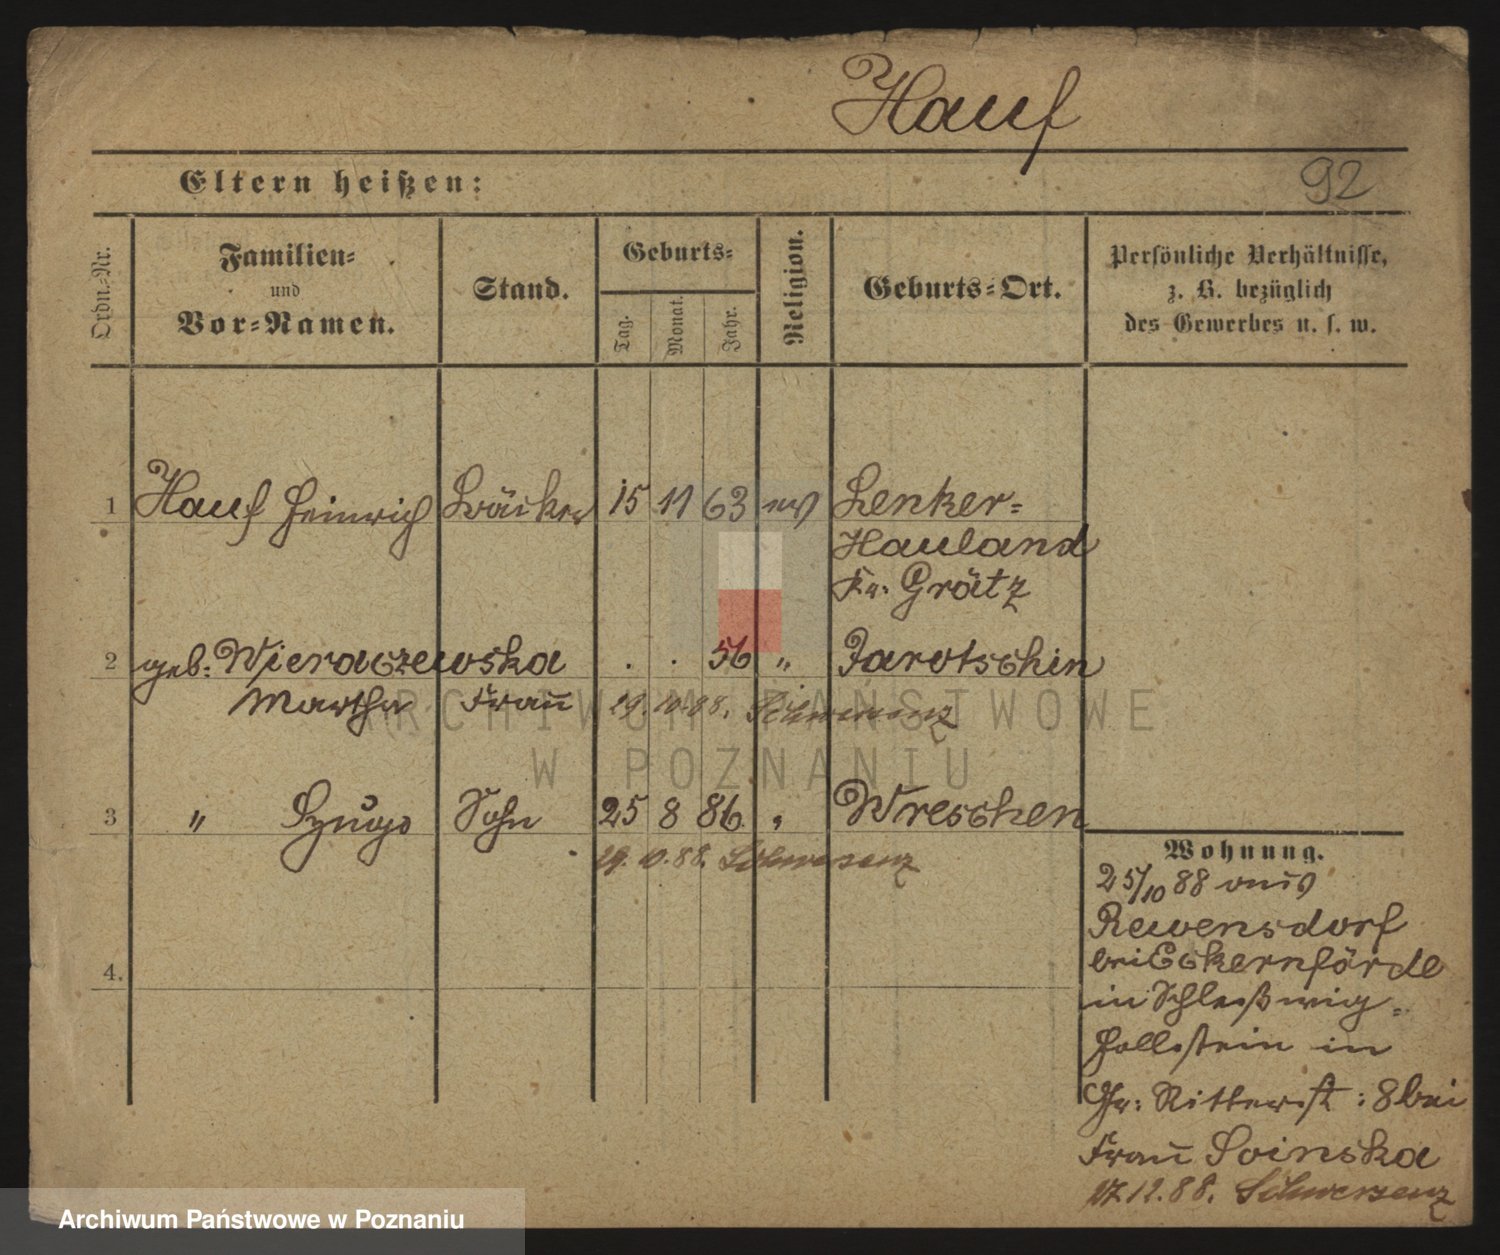 Hauf
92
Eltern heißen:
Ordn.-Nr.
Familien-
und
Vor-Namen.
Stand.
Geburts-
Tag.
Monat.
Jahr.
Religion.
Geburts-Ort.
Persönliche Verhältnisse,
z. B. bezüglich
des Gewerbes u. s. w.
1 Hauf Heinrich Bäcker 15 11 63 ev Lenker-
Hauland
Kr. Grätz
2 geb: Wieraczewska . . 56 " Jarotschin
Martha Frau 19. 10. 88. Schwersenz
3 " Sohn 25 8 86 " Wreschen
19. 10. 88. Schwersenz
4.
Wohnung.
25/10 88 aus
Rewensdorf
bei Eckernförde
in Schleßwig-
Hollstein in
Gr: Ritterst: 8 bei
Frau Soinska
12. 88. Schwersenz
ARCHIWUM PAŃSTWOWE
W POZNANIU
Archiwum Państwowe w Poznaniu